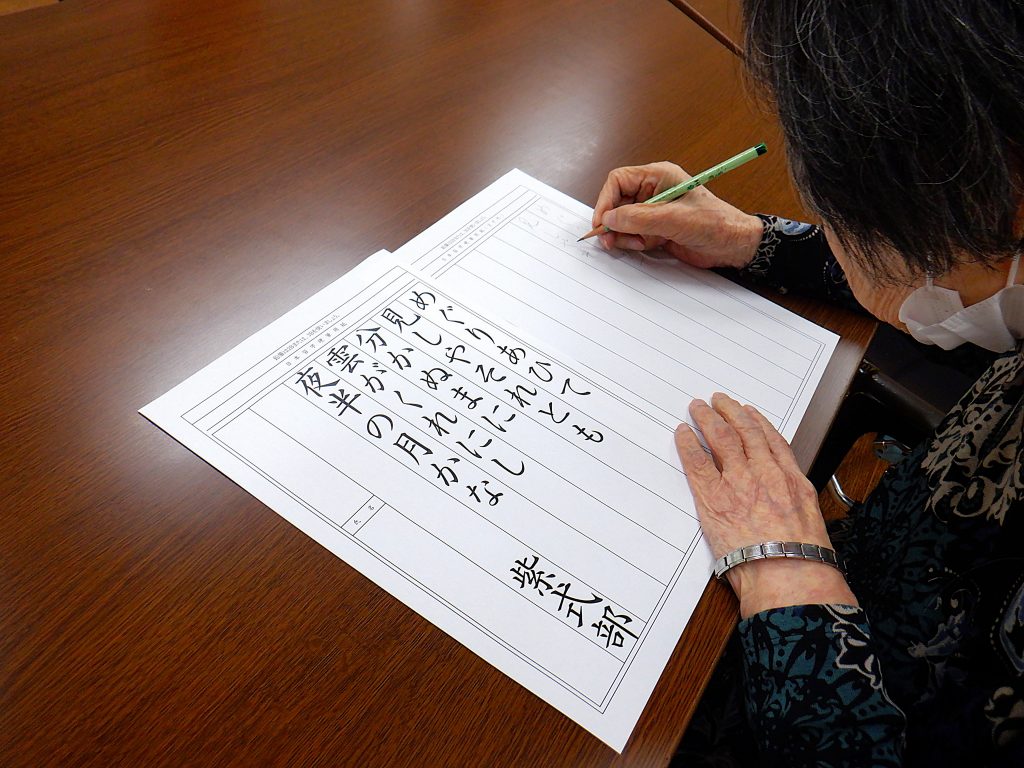 めぐりあひて
見しやそれとも
分かぬまに
雲がくれにし
夜半の月かな
紫式部
氏名